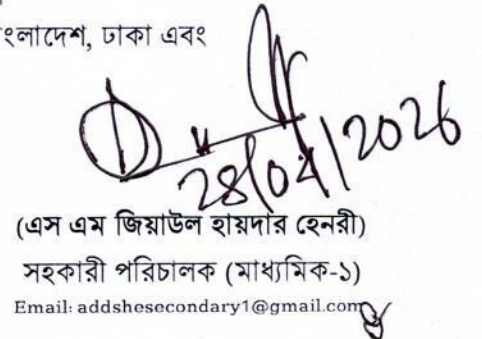 ংলাদেশ, ঢাকা এবং
28/04/2026
(এস এম জিয়াউল হায়দার হেনরী)
সহকারী পরিচালক (মাধ্যমিক-১)
Email: addshesecondary1@gmail.com